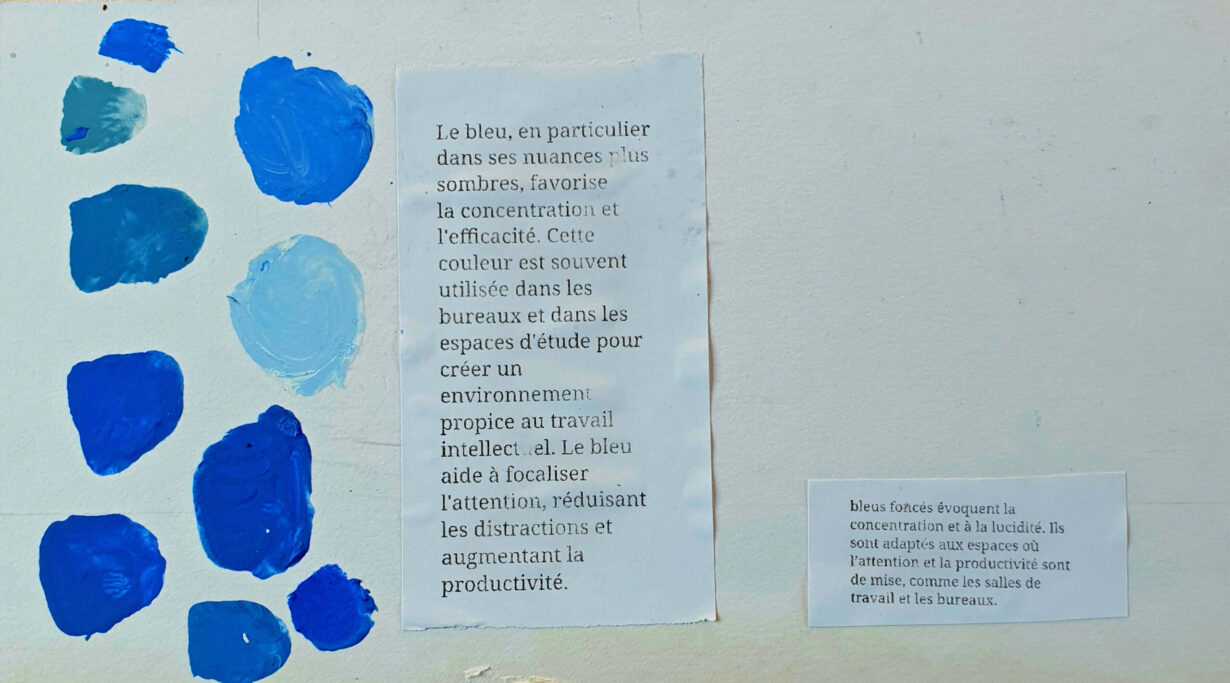 Le bleu, en particulier
dans ses nuances plus
sombres, favorise
la concentration et
l'efficacité. Cette
couleur est souvent
utilisée dans les
bureaux et dans les
espaces d'étude pour
créer un
environnement
propice au travail
intellectuel. Le bleu
aide à focaliser
l'attention, réduisant
les distractions et
augmentant la
productivité.
bleus foncés évoquent la
concentration et à la lucidité. Ils
sont adaptés aux espaces où
l'attention et la productivité sont
de mise, comme les salles de
travail et les bureaux.